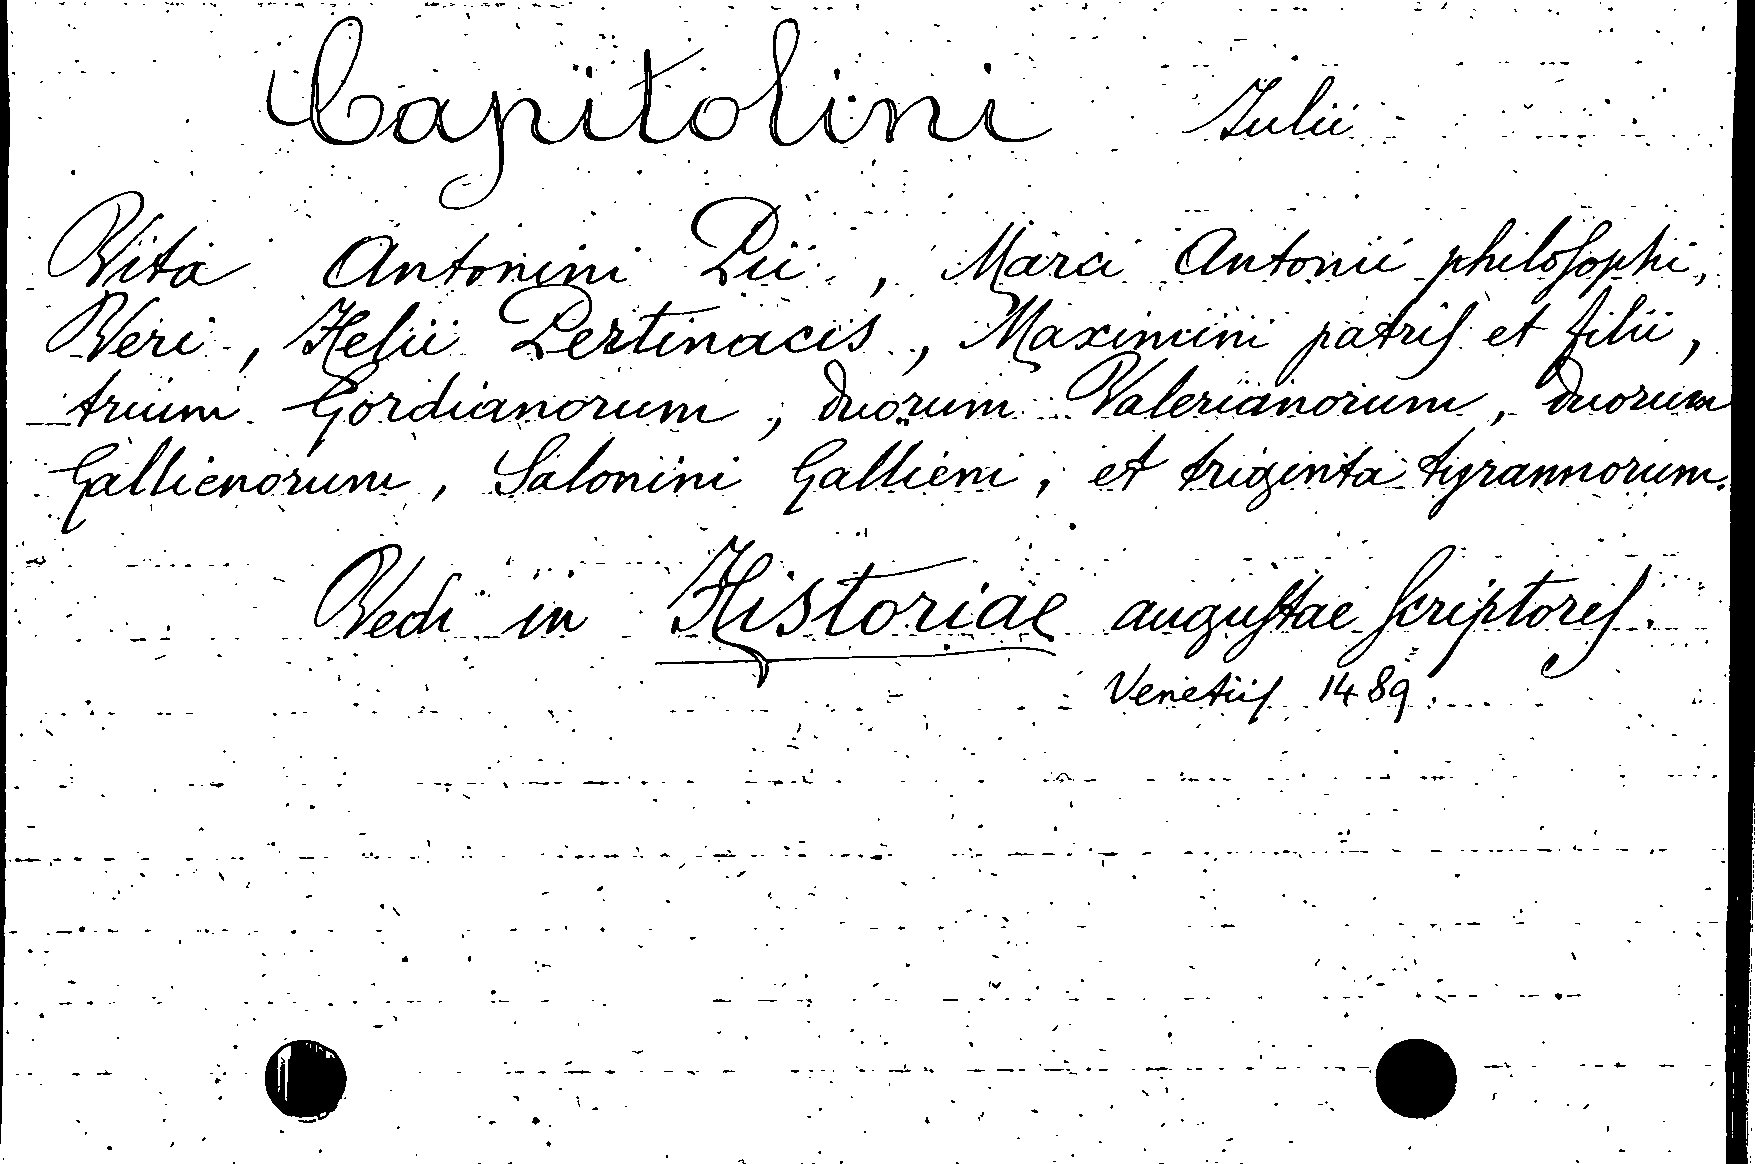 Capitolini Julii
Vita Antonini Pii, Marci Antonii philosophi,
Veri, Helii Pertinacis, Maximini patris et filii,
trium Gordianorum, duorum Valerianorum, duorum
Gallienorum, Salonini Gallieni, et triginta tyrannorum.
Vedi in Historiae augustae scriptores.
Venetiis 1489.